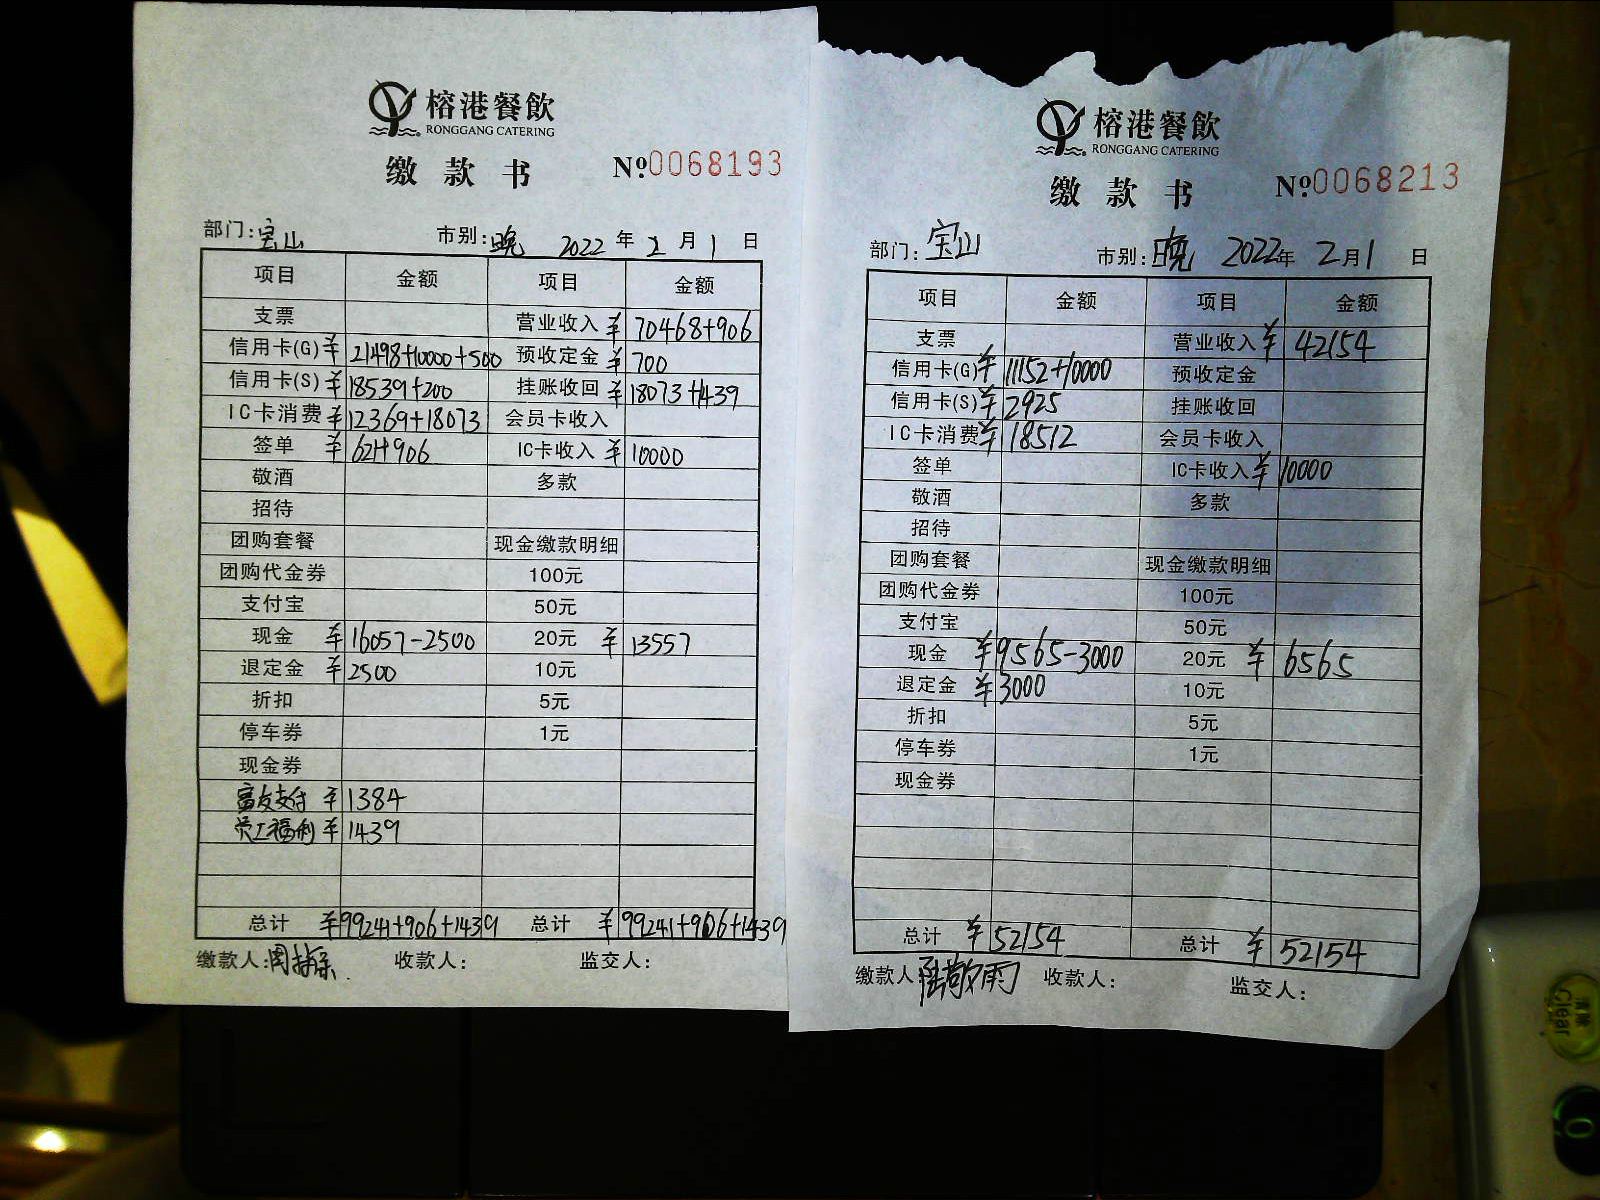 榕港餐飲
RONGGANG CATERING
缴款书 №0068193
部门:宝山 市别:晚 2022年2月1日
项目 金额 项目 金额
支票 营业收入 ¥70468+906
信用卡(G) ¥21498+10000+500 预收定金 ¥700
信用卡(S) ¥18539+200 挂账收回 ¥18073+1439
IC卡消费 ¥12369+18073 会员卡收入
签单 ¥621+906 IC卡收入 ¥10000
敬酒 多款
招待
团购套餐 现金缴款明细
团购代金券 100元
支付宝 50元
现金 ¥16057-2500 20元 ¥13557
退定金 ¥2500 10元
折扣 5元
停车券 1元
现金券
富友支付 ¥1384
员工福利 ¥1439
总计 ¥99241+906+1439 总计 ¥99241+906+1439
缴款人: 收款人: 监交人:
榕港餐飲
RONGGANG CATERING
缴款书 №0068213
部门:宝山 市别:晚 2022年2月1日
项目 金额 项目 金额
支票 营业收入 ¥42154
信用卡(G) ¥11152+10000 预收定金
信用卡(S) ¥2925 挂账收回
IC卡消费 ¥18512 会员卡收入
签单 IC卡收入 ¥10000
敬酒 多款
招待
团购套餐 现金缴款明细
团购代金券 100元
支付宝 50元
现金 ¥9565-3000 20元 ¥6565
退定金 ¥3000 10元
折扣 5元
停车券 1元
现金券
总计 ¥52154 总计 ¥52154
缴款人:陆敬雨 收款人: 监交人:
清除
Clear
0